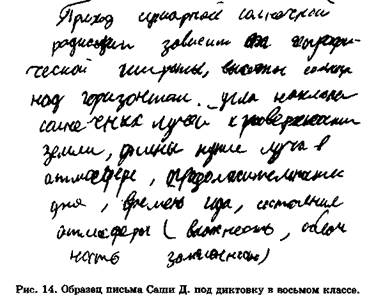 Приход суммарной солнечной
радиации зависит от географи-
ческой широты, высоты солнца
над горизонтом, угла наклона
солнечных лучей к поверхности
земли, длины пути луча в
атмосфере, продолжительности
дня, времени года, состояние
атмосферы (влажность, облач
ность
Рис. 14. Образец письма Саши Д. под диктовку в восьмом классе.